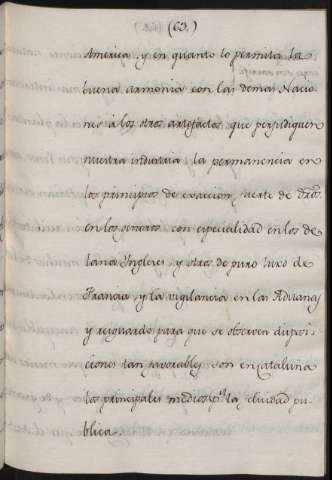 (63.)
America, y en quanto lo permita la
buena armonia con las demas Nacio
nes á los otros artefactos que perjudiquen
nuestra industria, la permanencia en
los principios de exaccion, y erte de Dros.
en los generos con especialidad en los de
lana Ingleses, y otros de puro luxo de
Francia, y la vigilancia en las Aduanas
y resguardo para que se observen disposi
ciones tan favorables, son en Cataluña
los principales medios pa. la
publica.